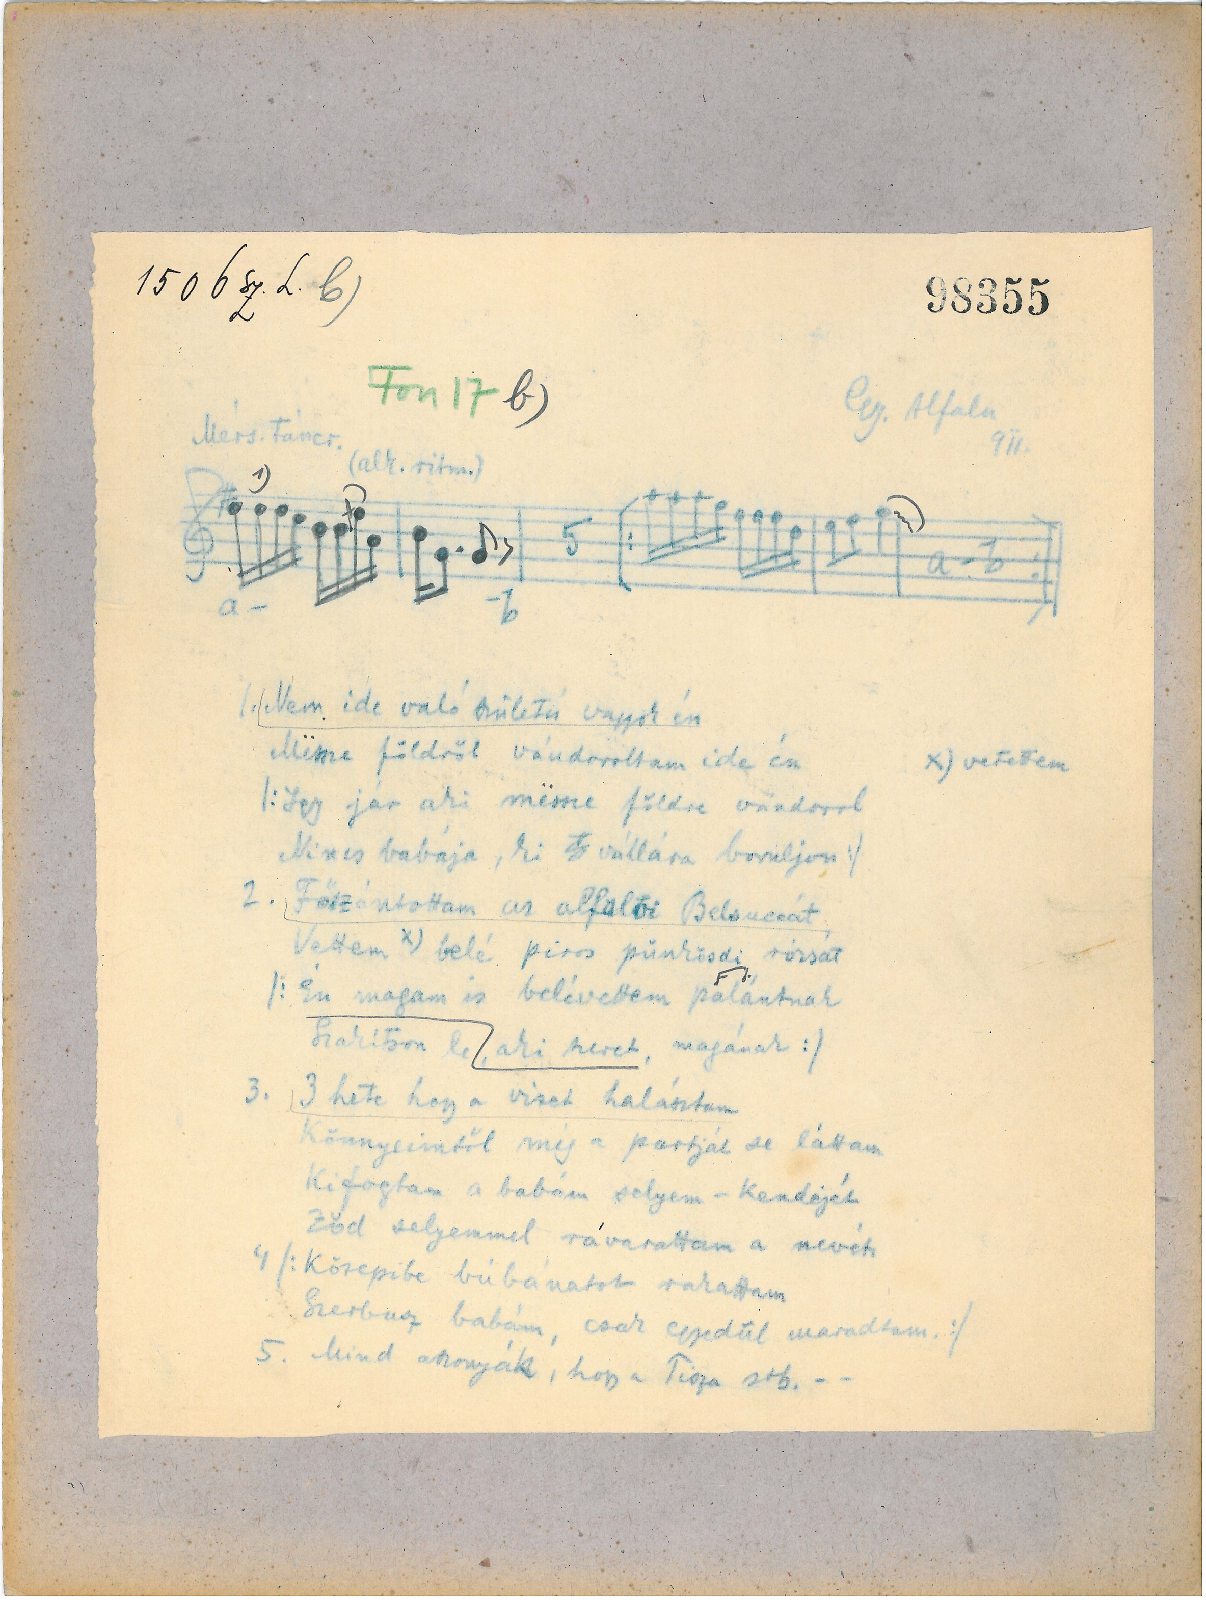 1506 sz. L. b)
98355
Fon 17 b)
Gy. Alfalu
911.
Mérs. táncr.
(alk. ritm.)
1)
5
a - b
a - b
1. Nem ide való születű vagyok én
Mësze földről vándoroltam ide én
x) vetettem
/: Igy jár aki mësze földre vándorol
Nincs babája, ki vállára boruljon :/
2. Főszántottam az alfalvi Belsuccát
Vettem x) belé piros pünkösdi rózsát
/: Én magam is belévettem palántnak
Szakitson le, aki szeret, magának :/
3. 3 hete hogy a vizet halásztam
Könnyeimtől még a partját se láttam
Kifogtam a babám selyem - kendőjét
Zöd selyemmel rávarattam a nevét
4 /: Közepibe búbánatot rakattam
Szerbusz babám, csak egyedül maradtam. :/
5. Mind aszonyák, hogy a Tisza stb. - -